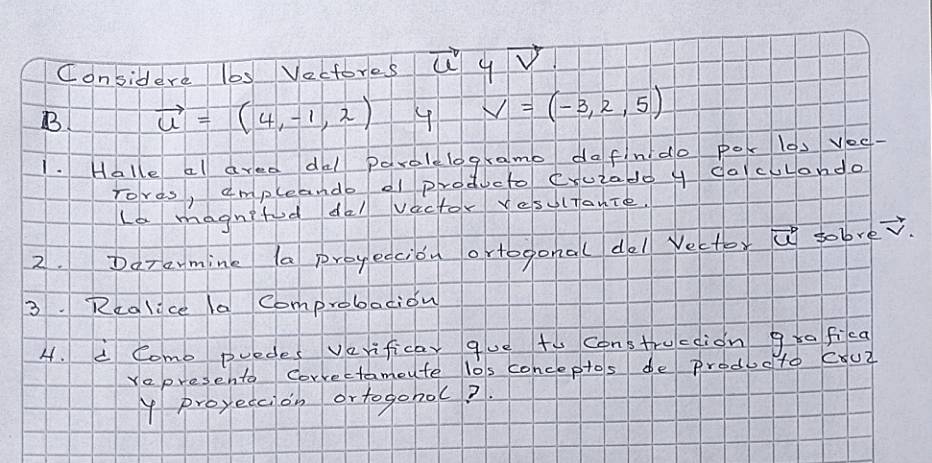 Considere los Vectores u⃗ y v⃗.
B. u⃗ = (4,-1,2) y v = (-3,2,5)
1. Halle el area del paralelogramo definido por los vec-
tores, empleando el producto cruzado y calculando
la magnitud del vector resultante.
2. Determine la proyección ortogonal del vector u⃗ sobre v⃗.
3. Realice la Comprobación
4. ¿Como puedes verificar que tu construcción grafica
represento correctamente los conceptos de producto cruz
y proyección ortogonal?.